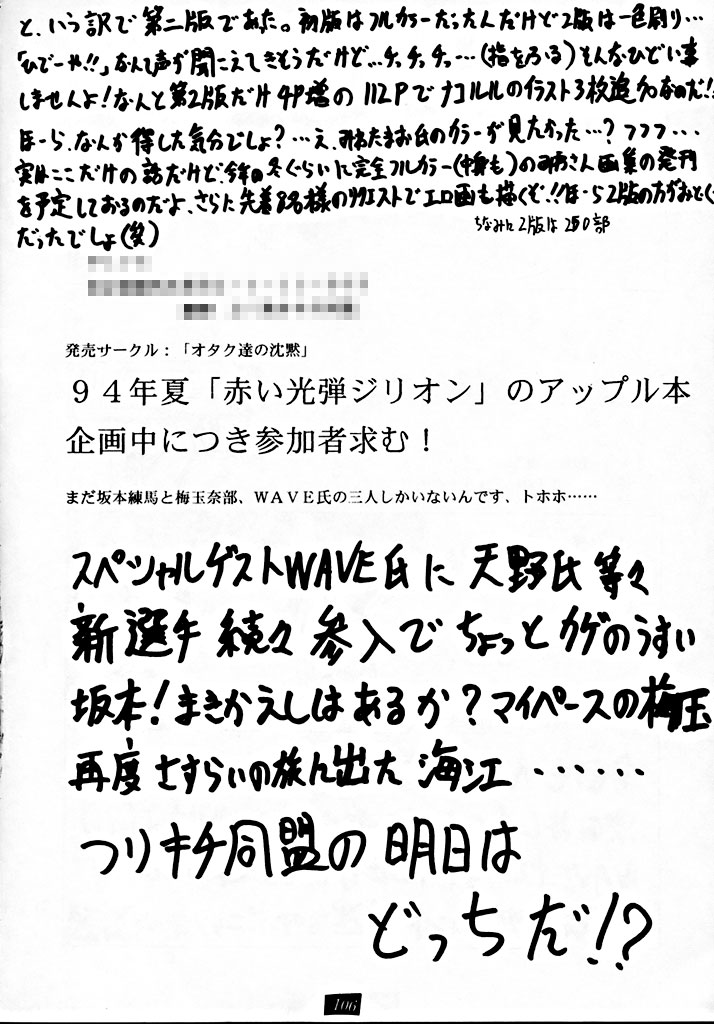 と、いう訳で第二版であた。初版はフルカラーだったんだけど2版は一色刷り…
「ひでーや!!」なんて声が聞こえてきそうだけど…チッチッチッ…(指をふる)そんなひどい事
しませんよ!なんと第2版だけ4P増の112Pでナコルルのイラスト3枚追加なのだ!!
ほーら、なんか得した気分でしょ?…え、みねたまお氏のカラーが見たかった…?フフフ…
実はここだけの話だけど、今年の冬ぐらいに完全フルカラー(中身も)の さん画集の発刊
を予定しておるのだよ、さらに先着 名様のリクエストでエロ画も描くぞ!!ほーら2版の方がおとく
だったでしょ(笑)
ちなみに2版は250部
発売サークル:「オタク達の沈黙」
94年夏「赤い光弾ジリオン」のアップル本
企画中につき参加者求む!
まだ坂本練馬と梅玉奈部、WAVE氏の三人しかいないんです、トホホ……
スペシャルゲストWAVE氏に天野氏等々
新選手続々参入でちょっとカゲのうすい
坂本!まきかえしはあるか?マイペースの梅玉
再度さすらいの旅ん出た海江……
つりキチ同盟の明日は
どっちだ!?
106